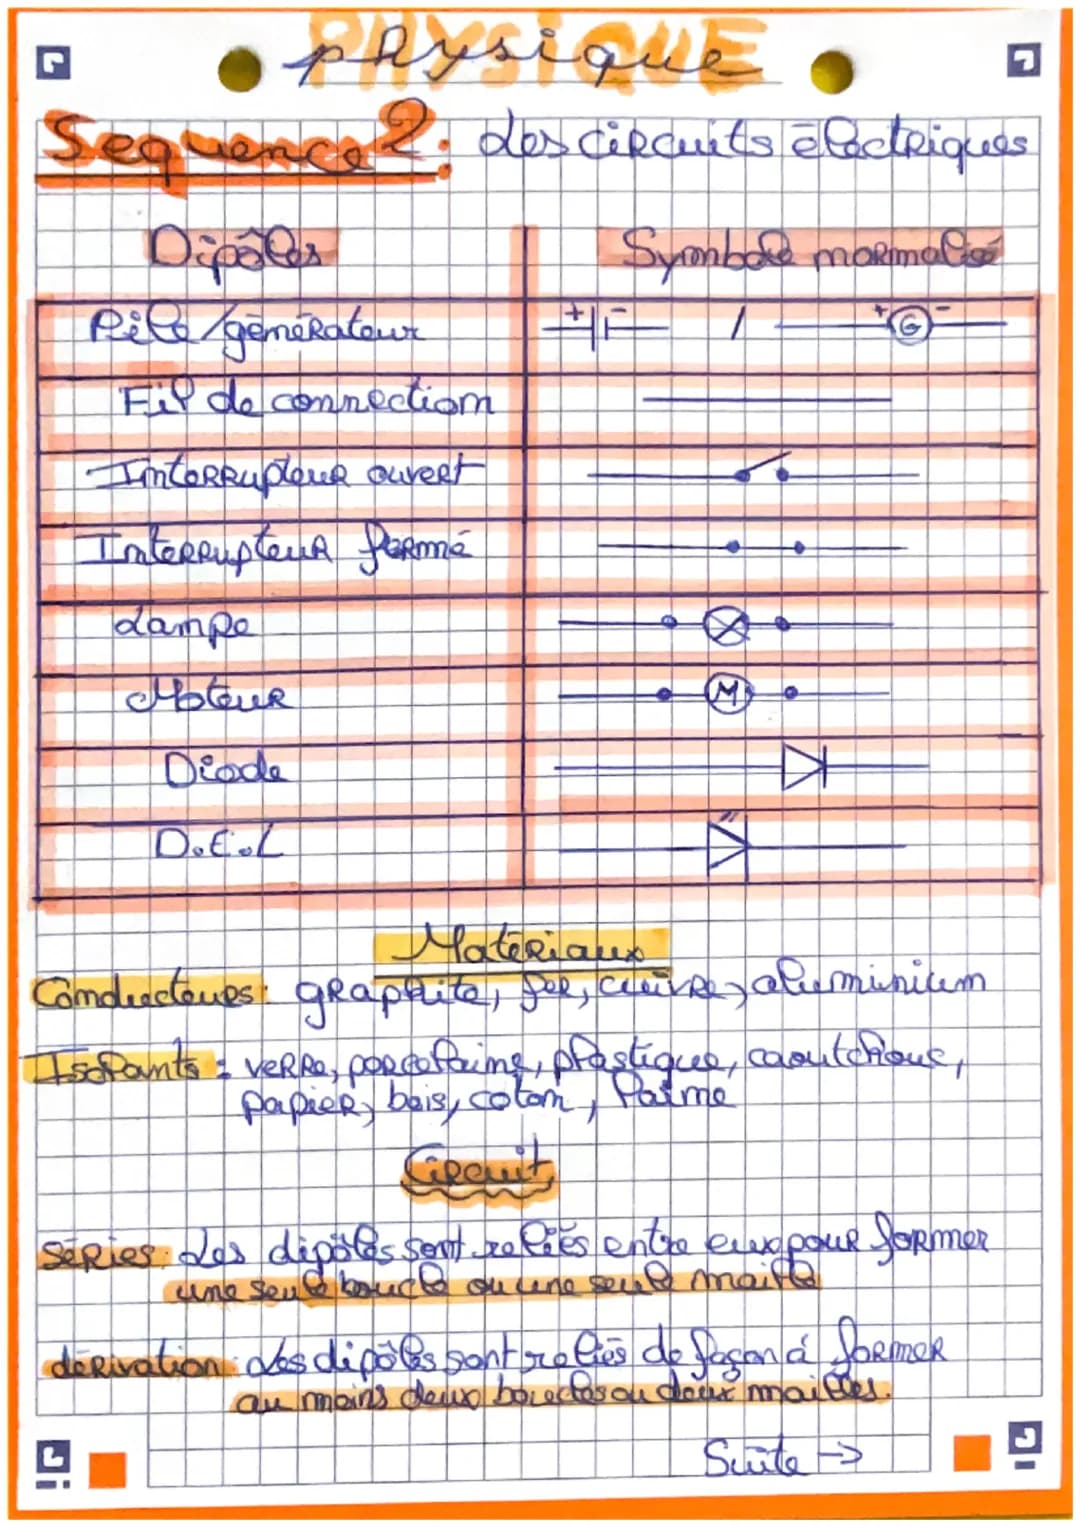 PHYSIQUE
physique
Sequence 2: Les circuits électriques
Dipôles Symbole normalisé
Pile/générateur + - / + G -
Fil de connection
Interrupteur ouvert
Interrupteur fermé
Lampe
Moteur M
Diode
D.E.L
Matériaux
Conducteurs: graphite, fer, cuivre, aluminium
Isolants: verre, porcelaine, plastique, caoutchouc,
papier, bois, coton, laine
Circuit
séries: Les dipôles sont reliés entre eux pour former
une seule boucle ou une seule maille
dérivation: Les dipôles sont reliés de façon à former
au moins deux boucles ou deux mailles.
Suite →